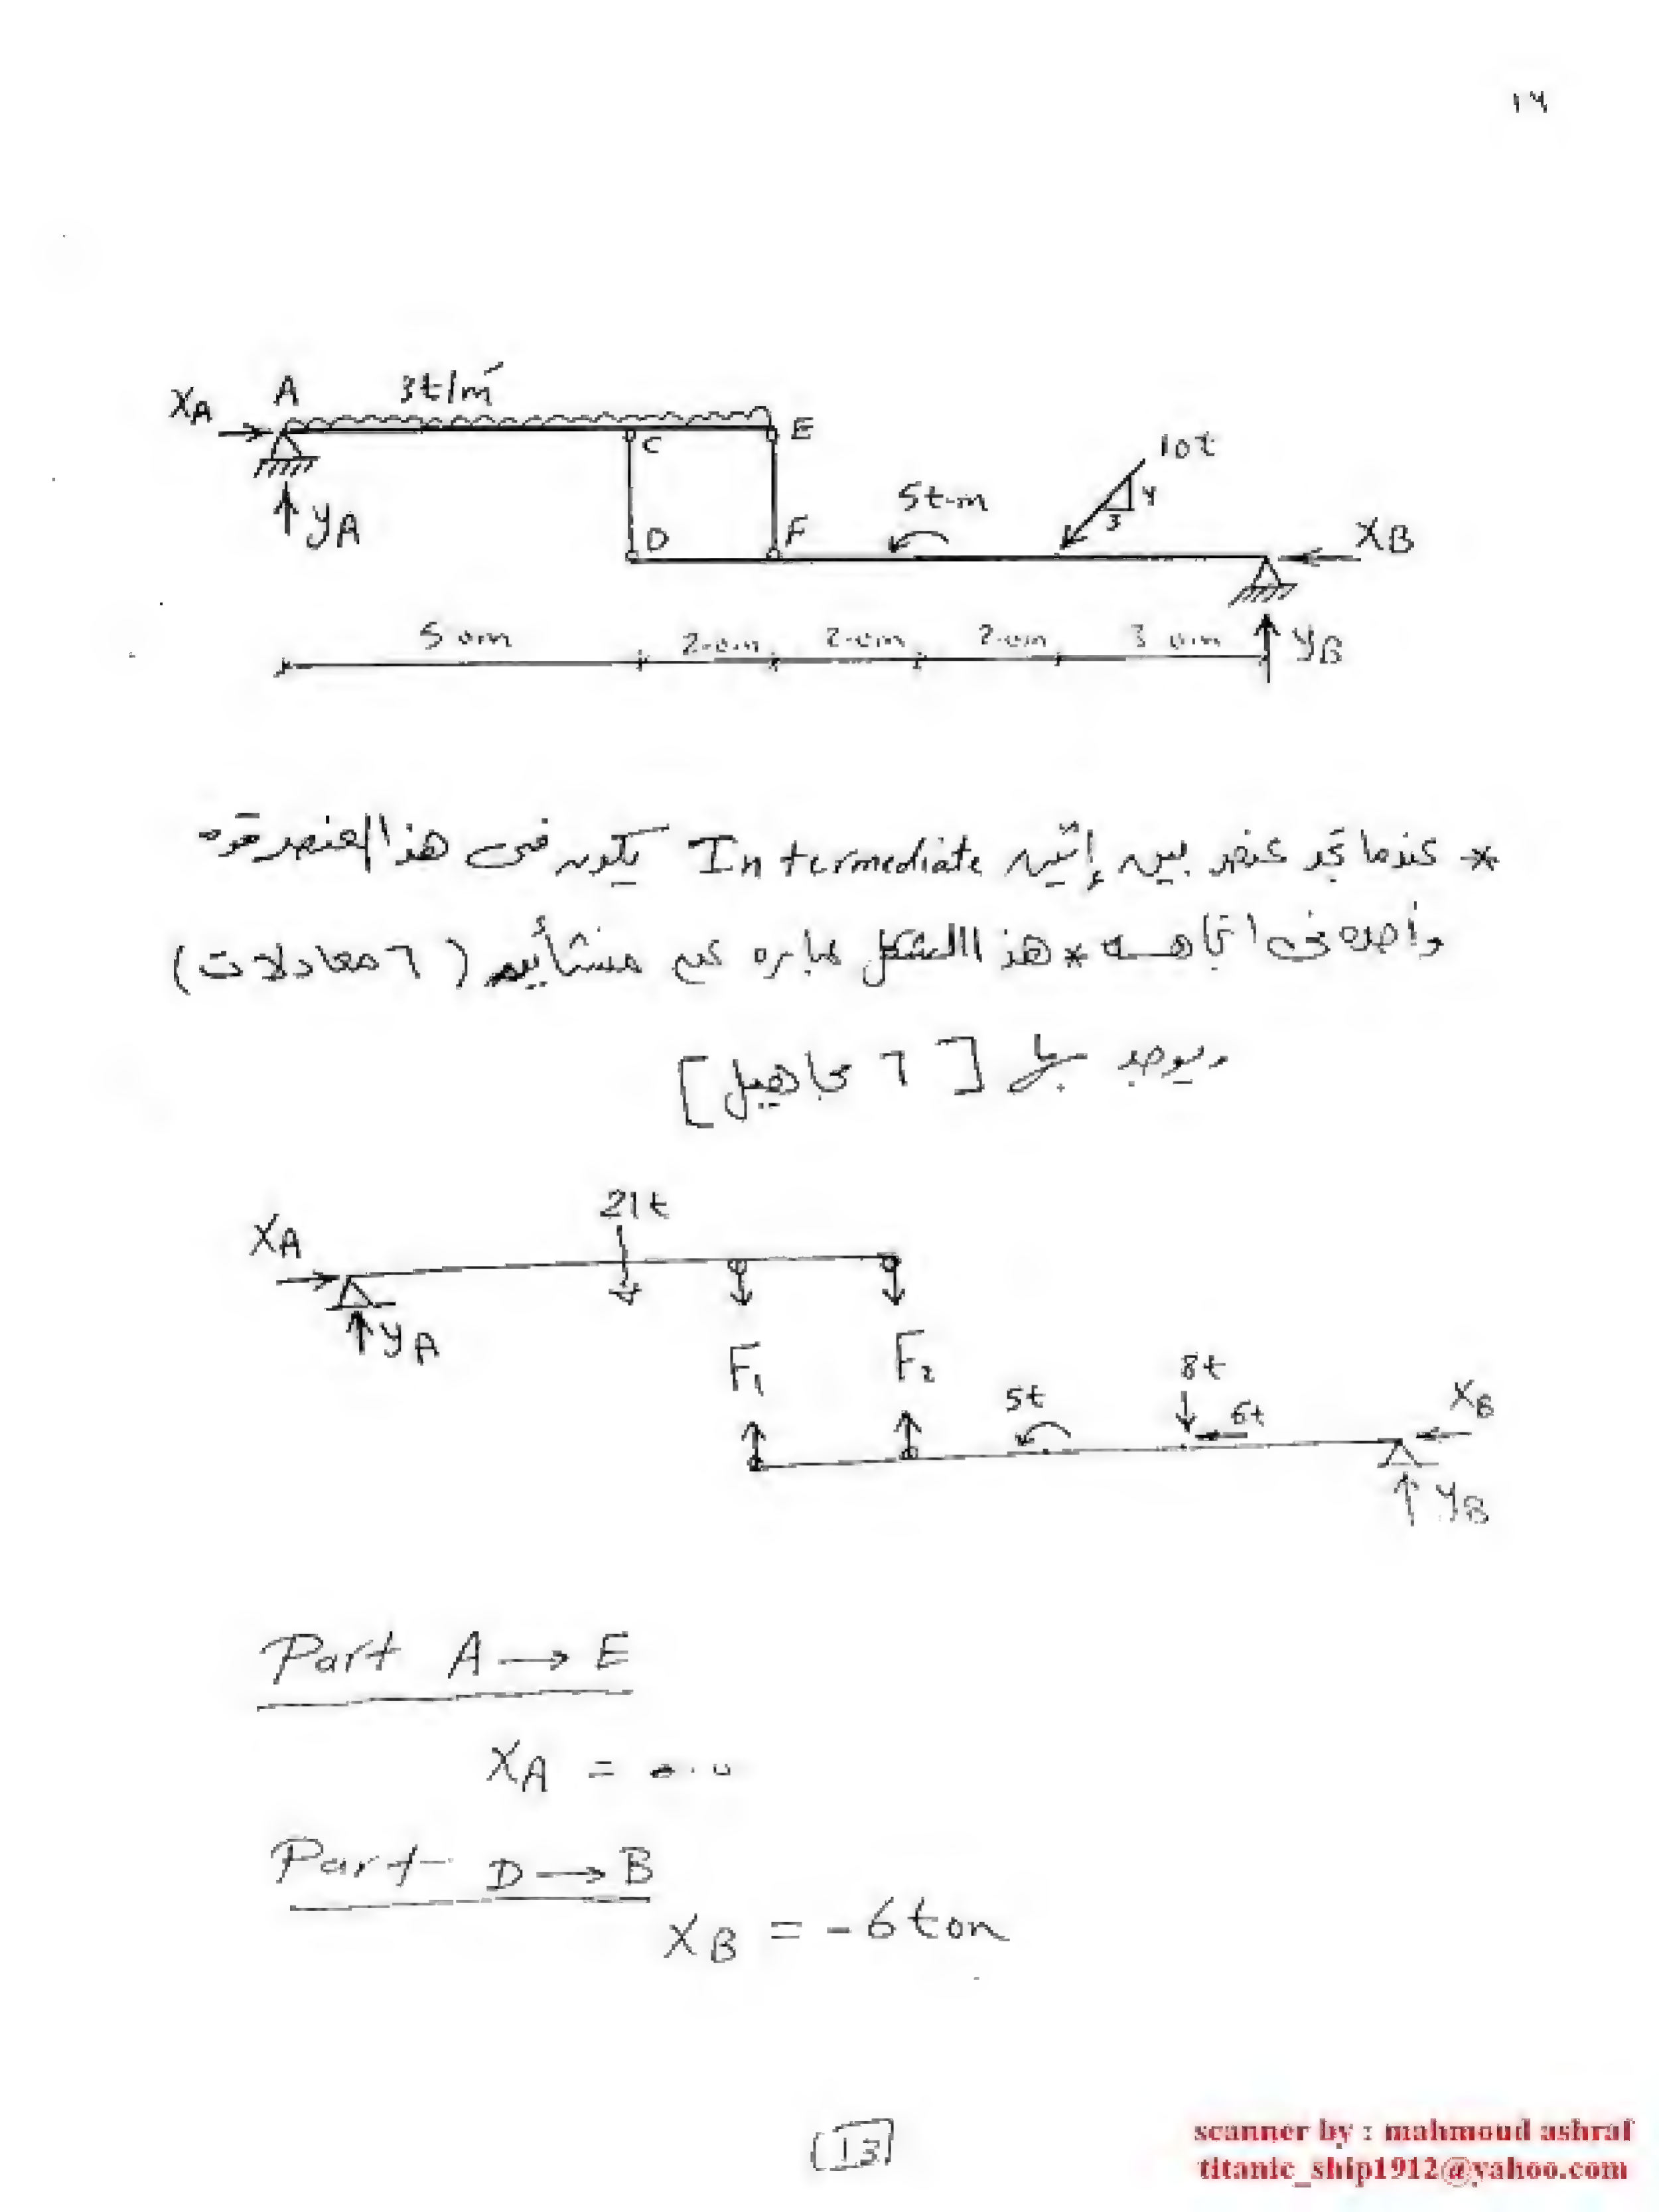 ١٣
X_A A 3t/m'
C E
10t
Y_A
5t-m 4
3
D F X_B
5.0m 2.0m 2.0m 2.0m 3.0m Y_B
* عندما تجد عنصر بين إثنين Intermediate يكون فى هذا العنصر قوه
واحده فى اتجاهه * هذا الشكل عباره عن منشأين (٦ معادلات)
ويوجد بها [٦ مجاهيل]
21t
X_A
Y_A
F_1 F_2
5t 8t 6t X_B
Y_B
Part A → E
X_A = 0.0
Part D → B
X_B = -6 ton
13
scanner by : mahmoud ashraf
titanic_ship1912@yahoo.com